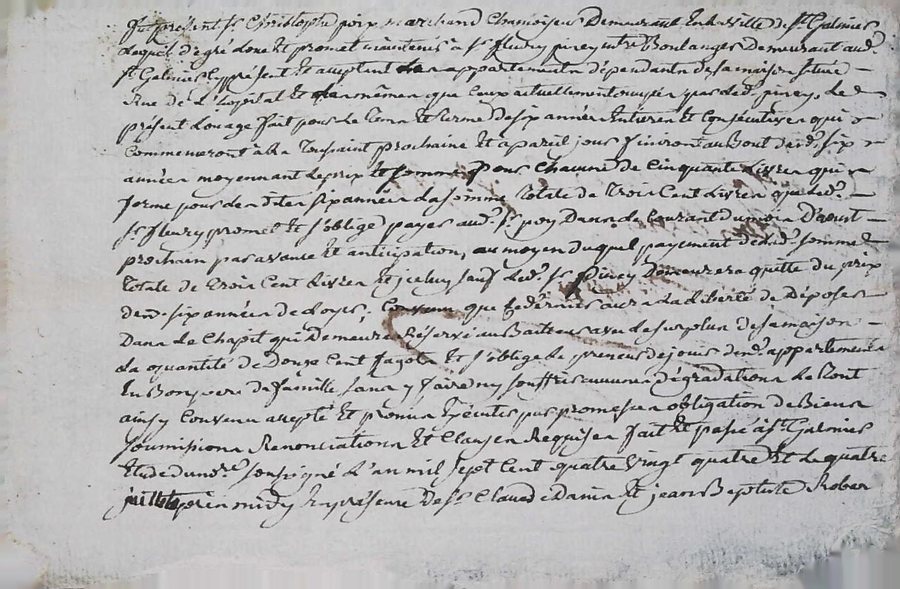 fut présent sr Christophe poix marchand chamoiseur Demeurant En la ville de st Galmier
Lequel de gré Loue Et promet maintenir à sr fleury pirey mtre Boulanger Demeurant aud.
st Galmier Cy présent Et acceptant Les appartements dépendants de sa maison située
Rue de L'hopital Et Les mêmes que Ceux actuellement occupés par led. pirey, Le
présent Louage fait pour le tems Et terme de six années Entieres Et Consécutives qui
Commenceront à La Toussaint prochaine Et a pareil jour finiront au Bout desd. six
années moyennant Le prix Et somme pour Chacune de Cinquante Livres qui
forme pour les dites six années La somme Totale de Trois Cent Livres que led.
sr fleury promet Et s'oblige payer aud. sr poix Dans Le Courant du mois D'aoust
prochain par avance Et anticipation, au moyen duquel payement de lad. somme
Totale de trois Cent Livres Et iceluy fait led. sr pirey Demeurera quitte du prix
desd. six années de Loyer, Convenu que Ce dernier aura La Liberté de Déposer
Dans Le Chapit qui Demeure Réservé au Bailleur avec Le surplus de sa maison
La quantité de Douze Cent fagots Et s'oblige Le preneur de jouir desd. appartements
En Bon pere de famille sans y faire ny souffrir aucunes dégradations Le Tout
ainsy Convenu accepté Et promis Exécuter par promesses obligation de Biens
soumissions Renonciations Et Clauses Requises fait Et passé à st Galmier
Etude du nre soussigné L'an mil sept Cent quatre vingt quatre Et Le quatre
juillet après midy En présence De sr Claude Damin Et jean Baptiste Robas